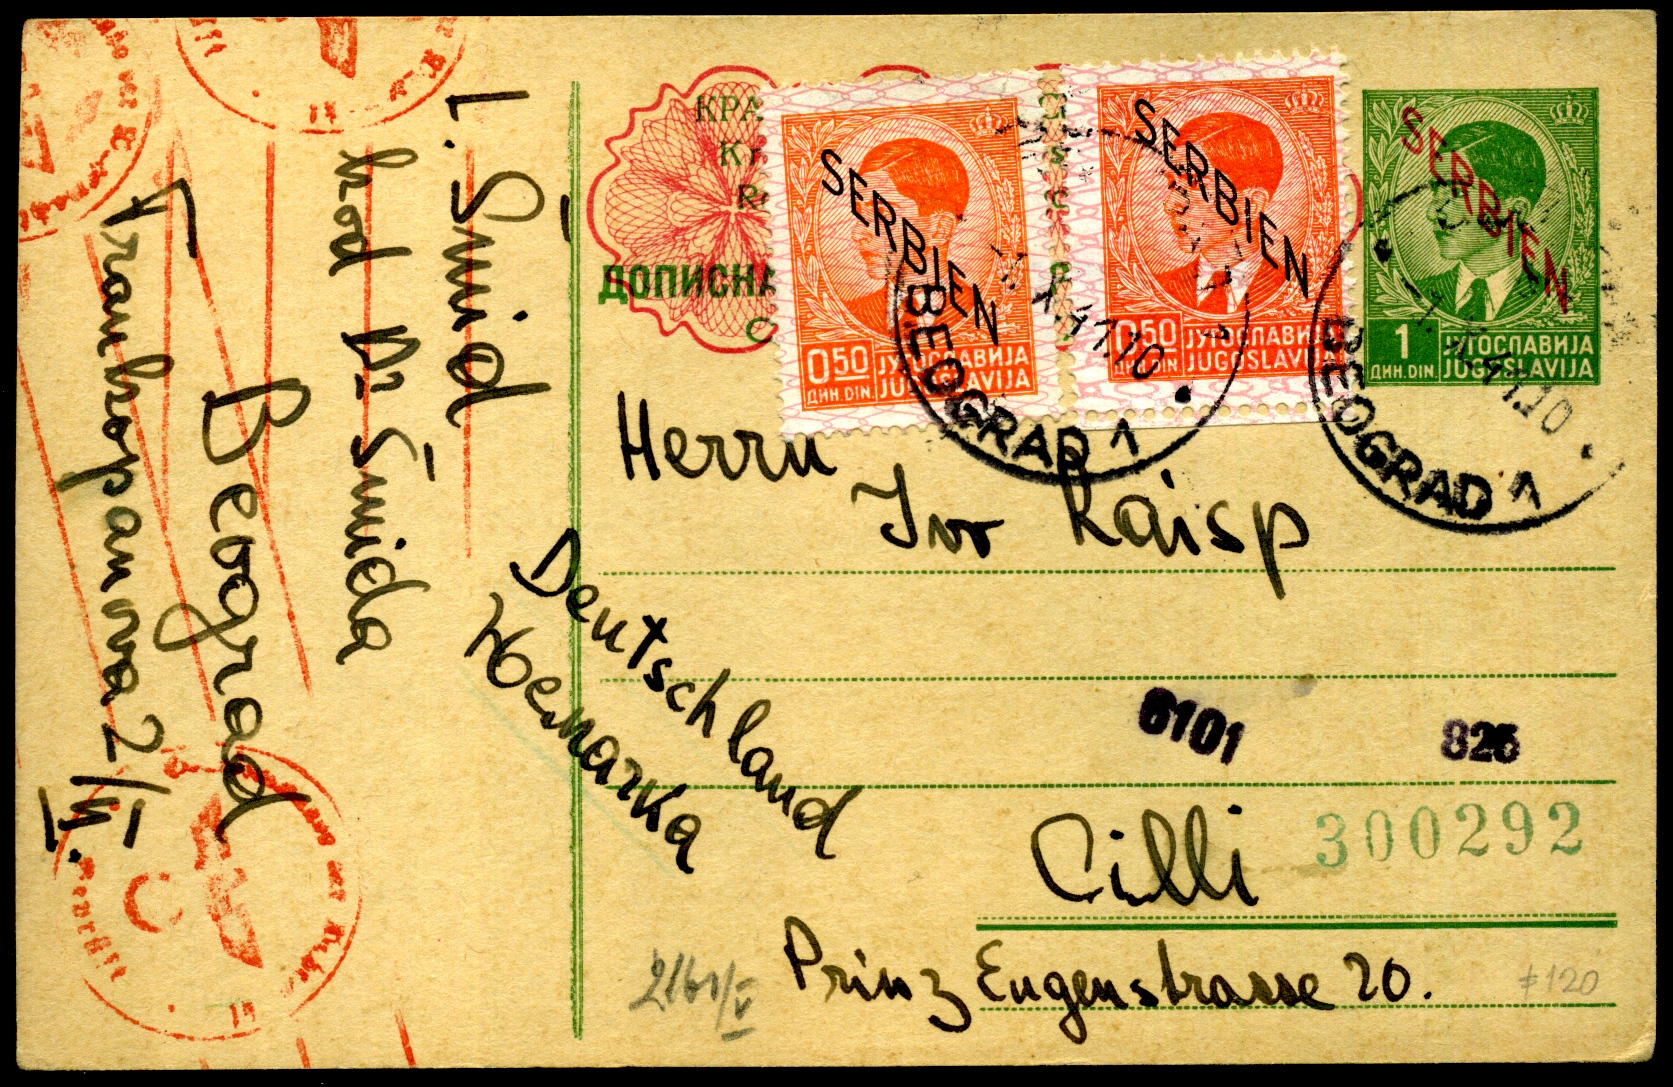 L. Šmid
kod Dr Šmida
Beograd
Frankopanova 2/II.
КРА
Kr
ДОПИСНА
SERBIEN
0.50 ЈУГОСЛАВИЈА
ДИН. DIN. JUGOSLAVIJA
SERBIEN
0.50 ЈУГОСЛАВИЈА
ДИН. DIN. JUGOSLAVIJA
SERBIEN
1 ЈУГОСЛАВИЈА
ДИН. DIN. JUGOSLAVIJA
BEOGRAD 1
BEOGRAD 1
Herrn
Ivo Kaisp
Deutschland
Немачка
6101 826
Cilli
300292
Prinz Eugenstrasse 20.
geprüft